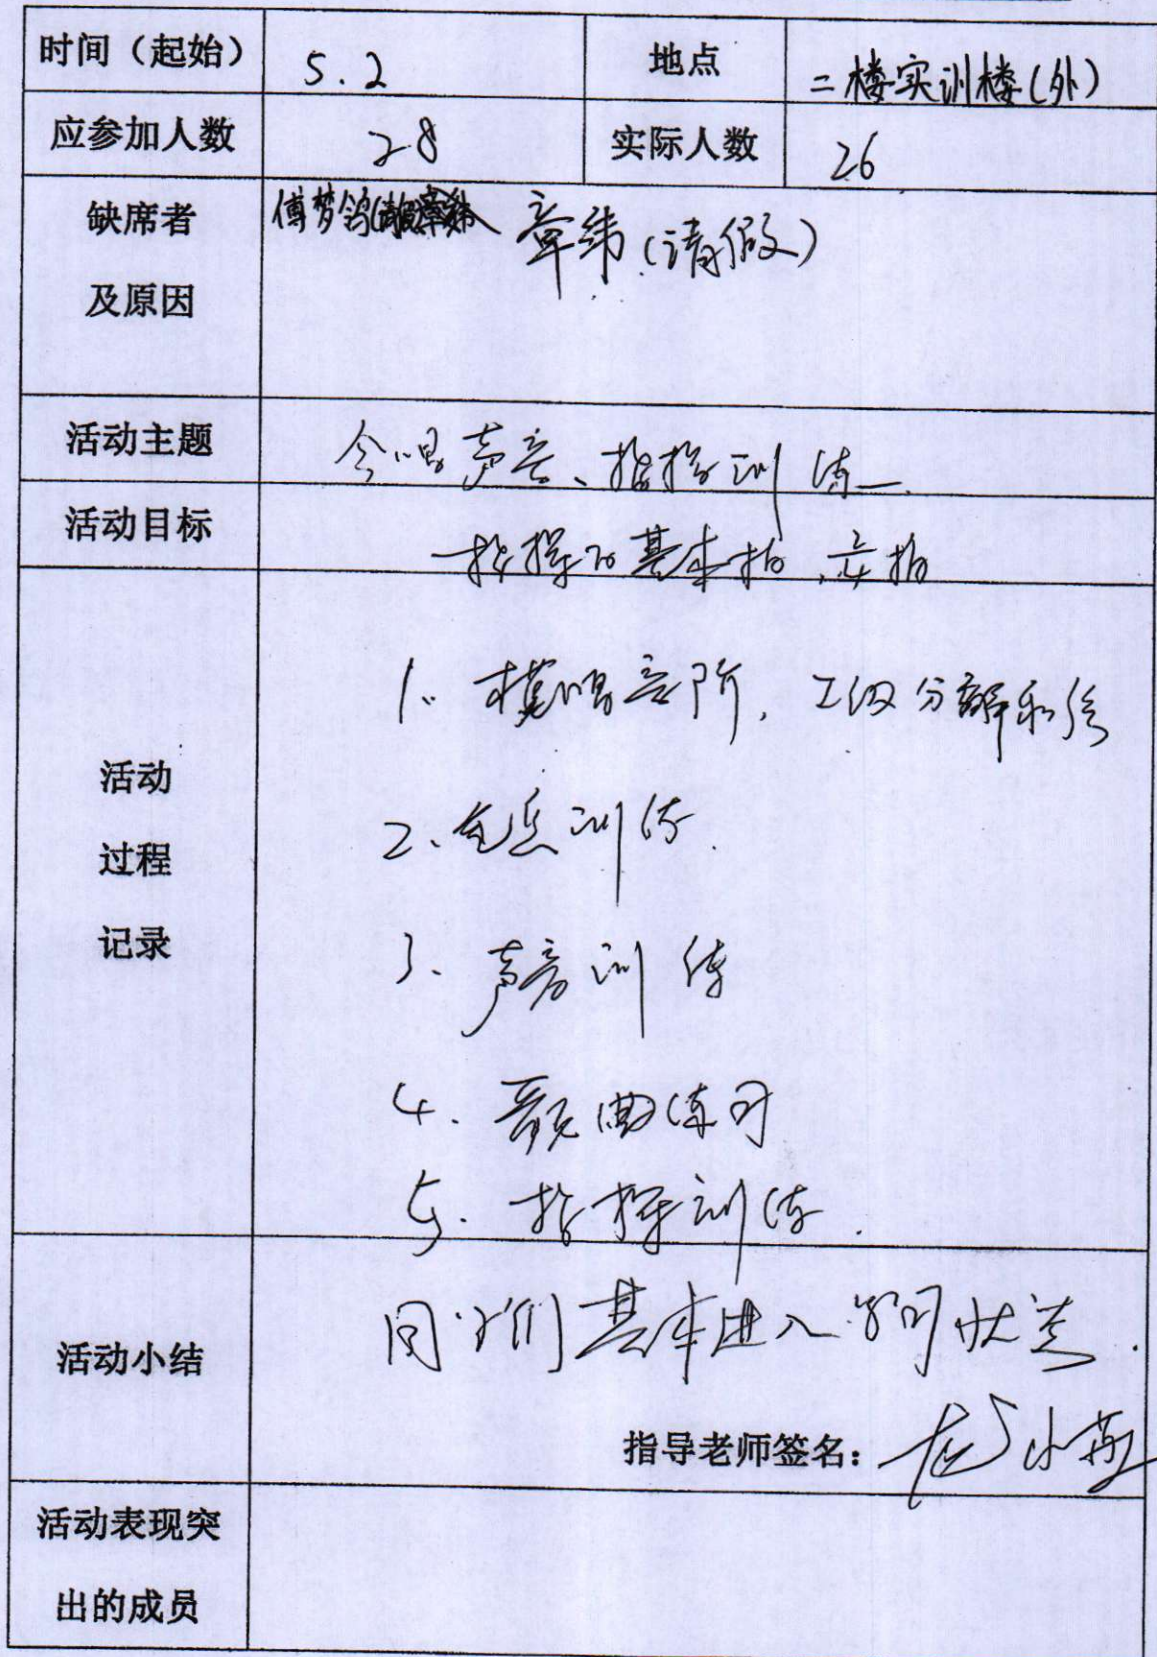 时间（起始） 5.2 地点 二楼实训楼(外)
应参加人数 28 实际人数 26
缺席者 傅梦鸽 章纬(请假)
及原因
活动主题 合唱声音、指挥训练
活动目标 指挥的基本拍
活动
过程
记录
1. 模唱音阶, 分解和弦
2. 气息训练.
3. 声音训练
4. 歌曲练习
5. 指挥训练.
活动小结 同学们基本进入学习状态.
指导老师签名：
活动表现突
出的成员